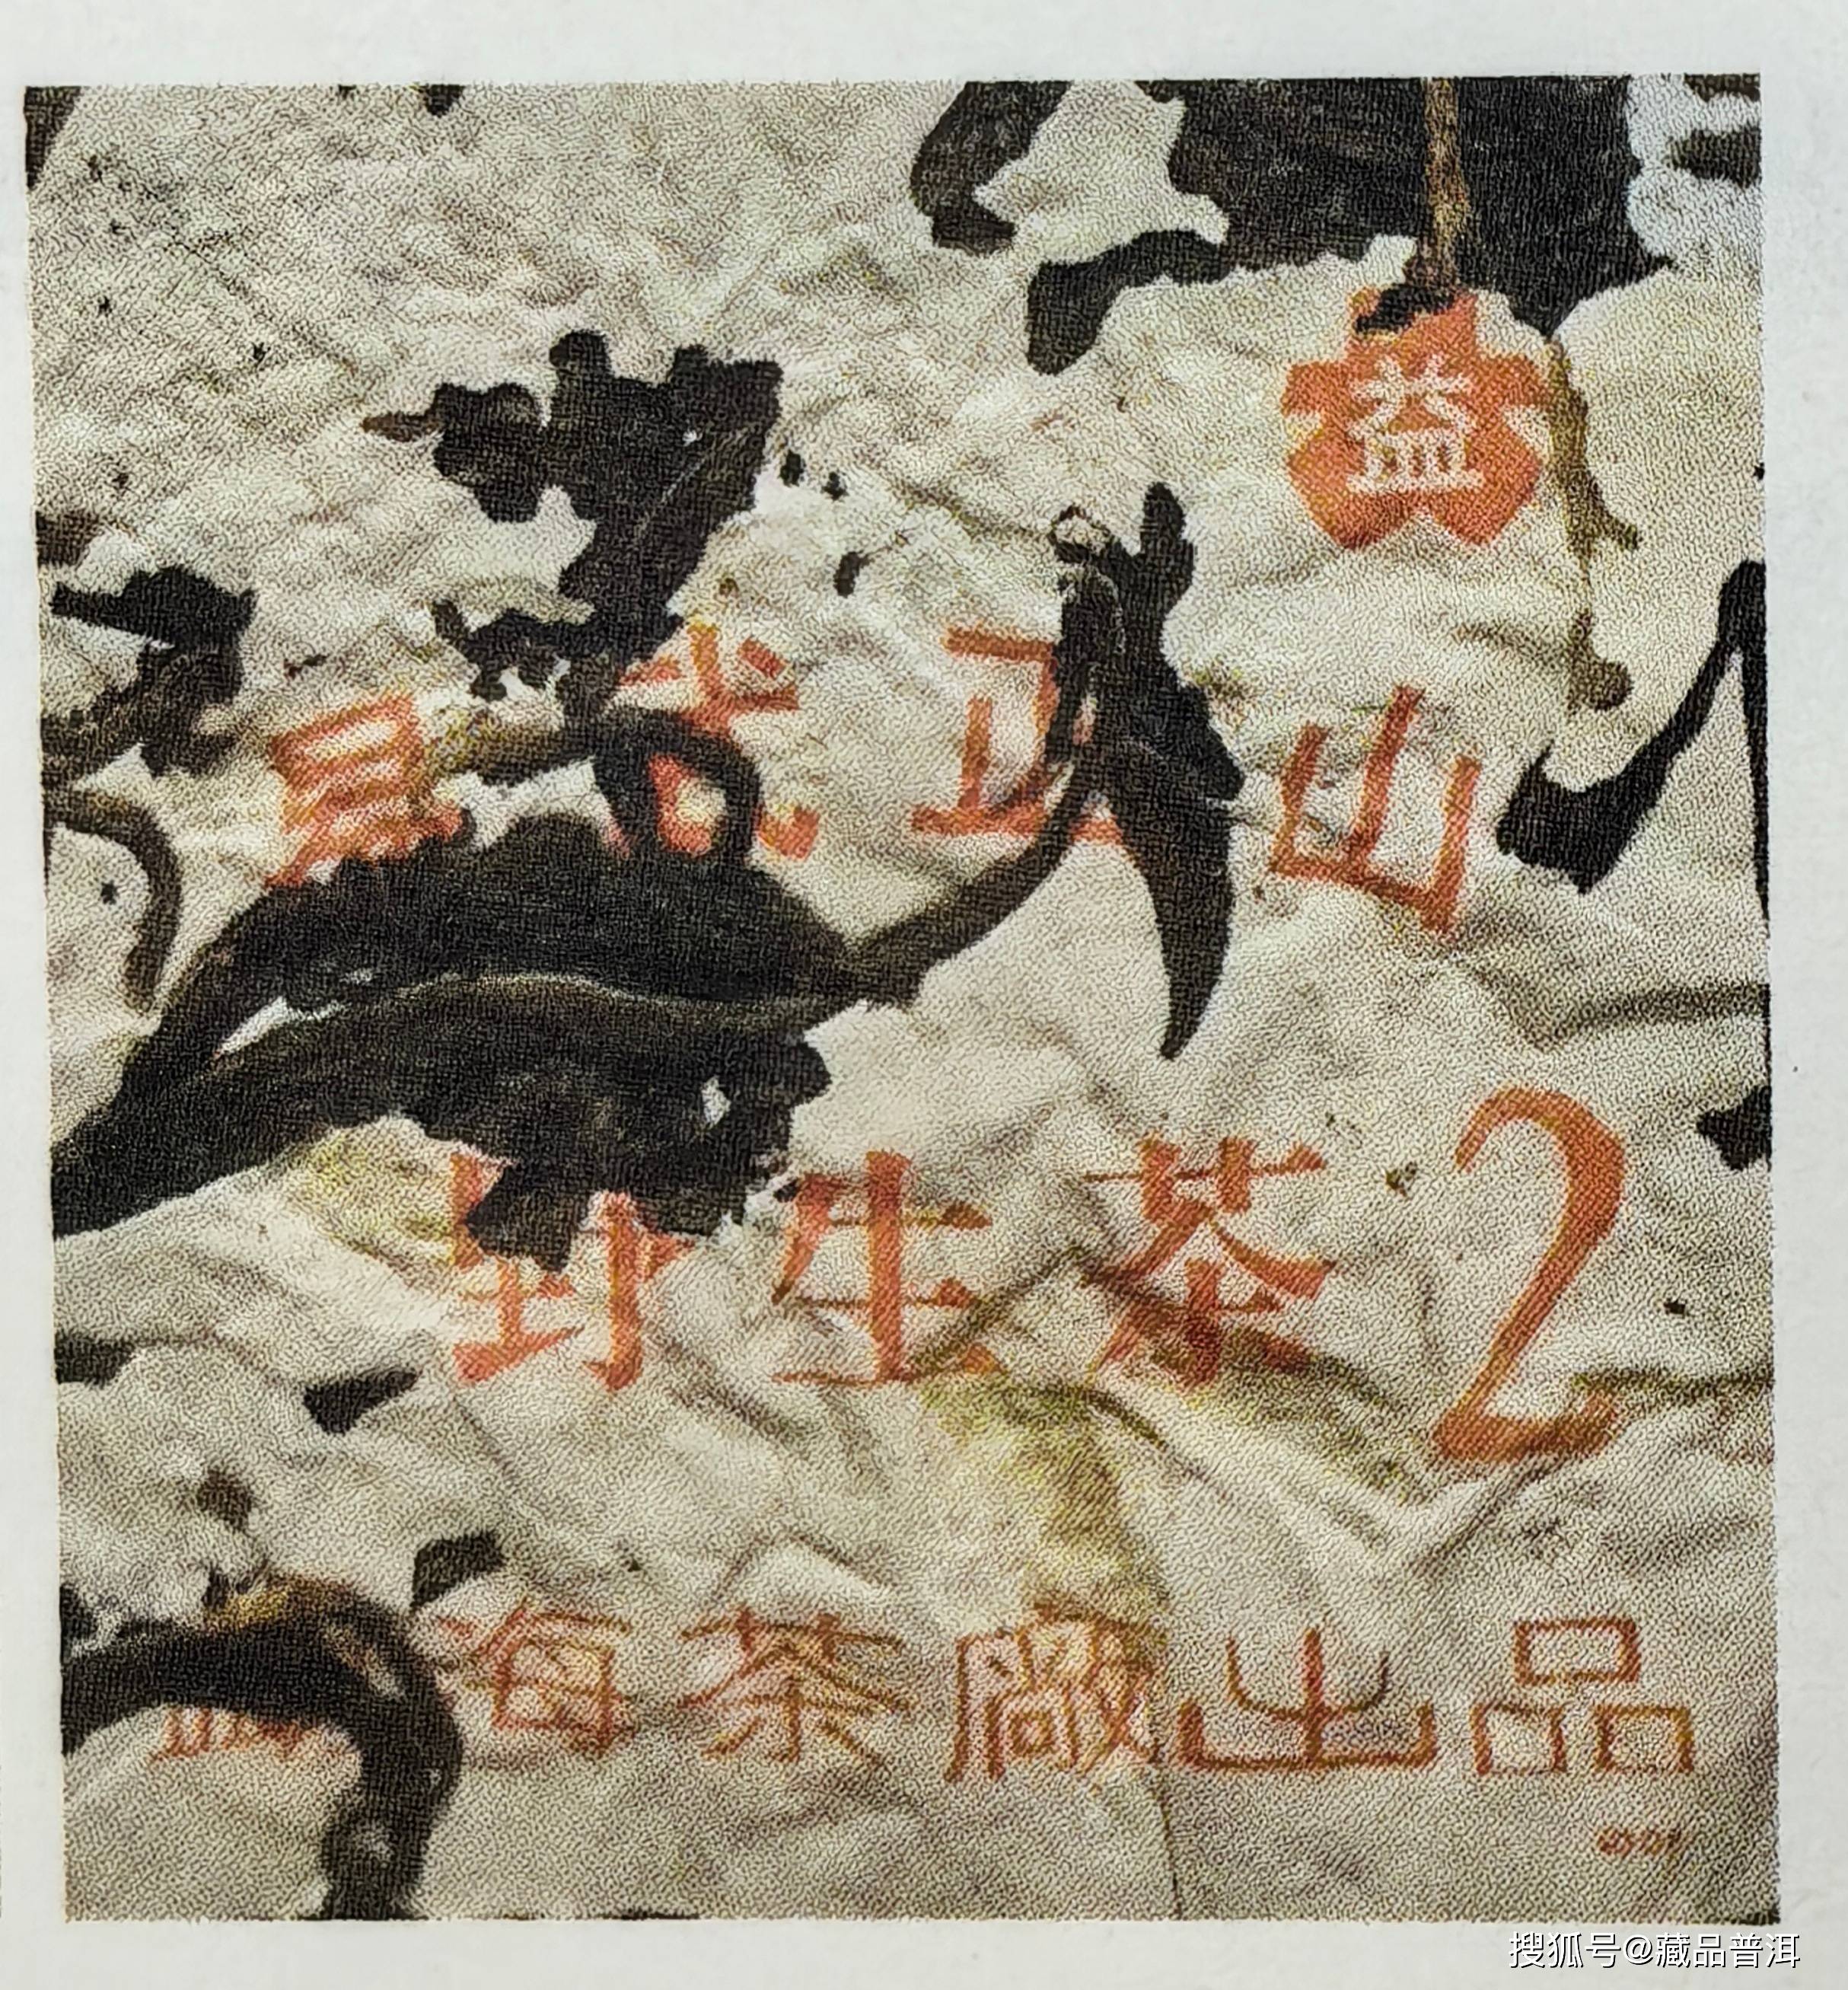 益
易武正山
野生茶2
海茶廠出品
搜狐号@藏品普洱